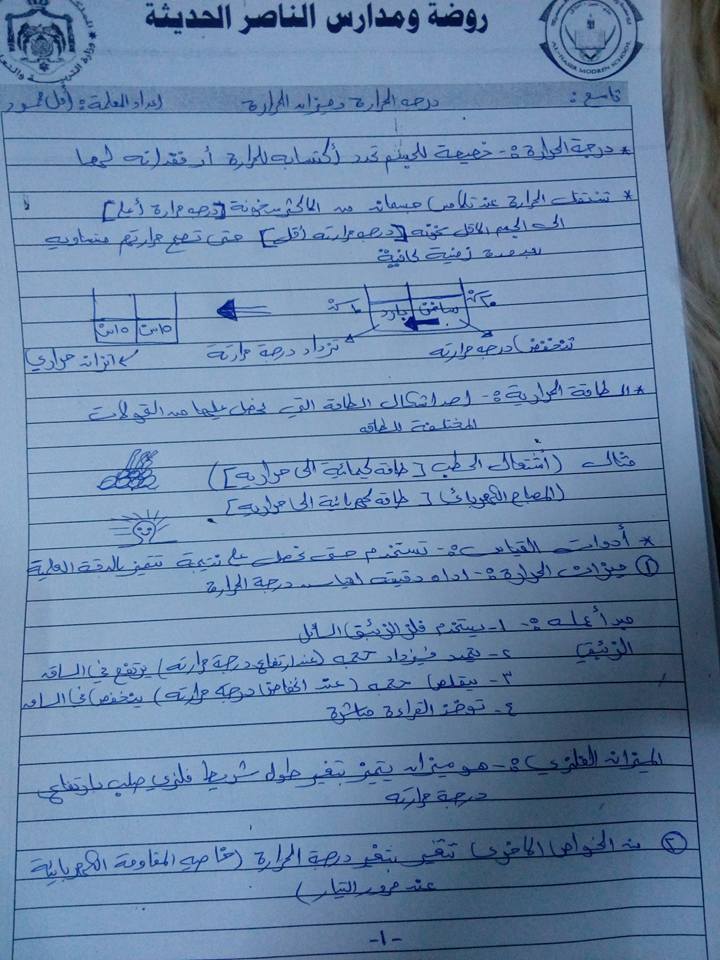 روضة ومدارس الناصر الحديثة
AL-NASER MODREN SCHOOL
تاسع : درجة الحرارة وميزان الحرارة إعداد المعلمة : أمل محمود
* درجة الحرارة :- خصيصة للجسم تحدد أكتسابه للحرارة أو فقدانه لها
* تنتقل الحرارة عند تلامس جسمان من الأكثر سخونة [درجة حرارة أعلى]
الى الجسم الاقل سخونه [درجة حرارته أقل] حتى تصبح حرارتهم متساوية
بعد مدة زمنية كافية
ساخن بارد
١٥س ١٥س
تنخفض درجة حرارته تزداد درجة حرارته اتزان حراري
* الطاقة الحرارية :- احد اشكال الطاقة التي نحصل عليها من التحولات
المختلفة للطاقه
مثال (أشتعال الحطب [طاقة كيميائية الى حرارية])
(المصباح الكهربائي) [طاقة كهربائية الى حرارية]
* أدوات القياس :- تستخدم حتى نحصل على نتيجة تتميز بالدقة العلمية
① ميزان الحرارة :- اداه دقيقه لقياس درجة الحرارة
مبدأ عمله :- ١- يستخدم فلز الزئبق السائل
الزئبقي ٢- يتمدد فيزداد حجمه (عند ارتفاع درجة حرارته) يرتفع في الساق
٣- يتقلص حجمه (عند انخفاض درجة حرارته) ينخفض في الساق
٤- تؤخذ القراءة مباشرة
الميزان الفلزي :- هو ميزان يتميز بتغير طول شريط فلزي صلب بارتفاع
درجة حرارته
② من الخواص الاخرى تتغير بتغير درجة الحرارة (خاصيه المقاومة الكهربائية
عند مرور التيار)
-١-